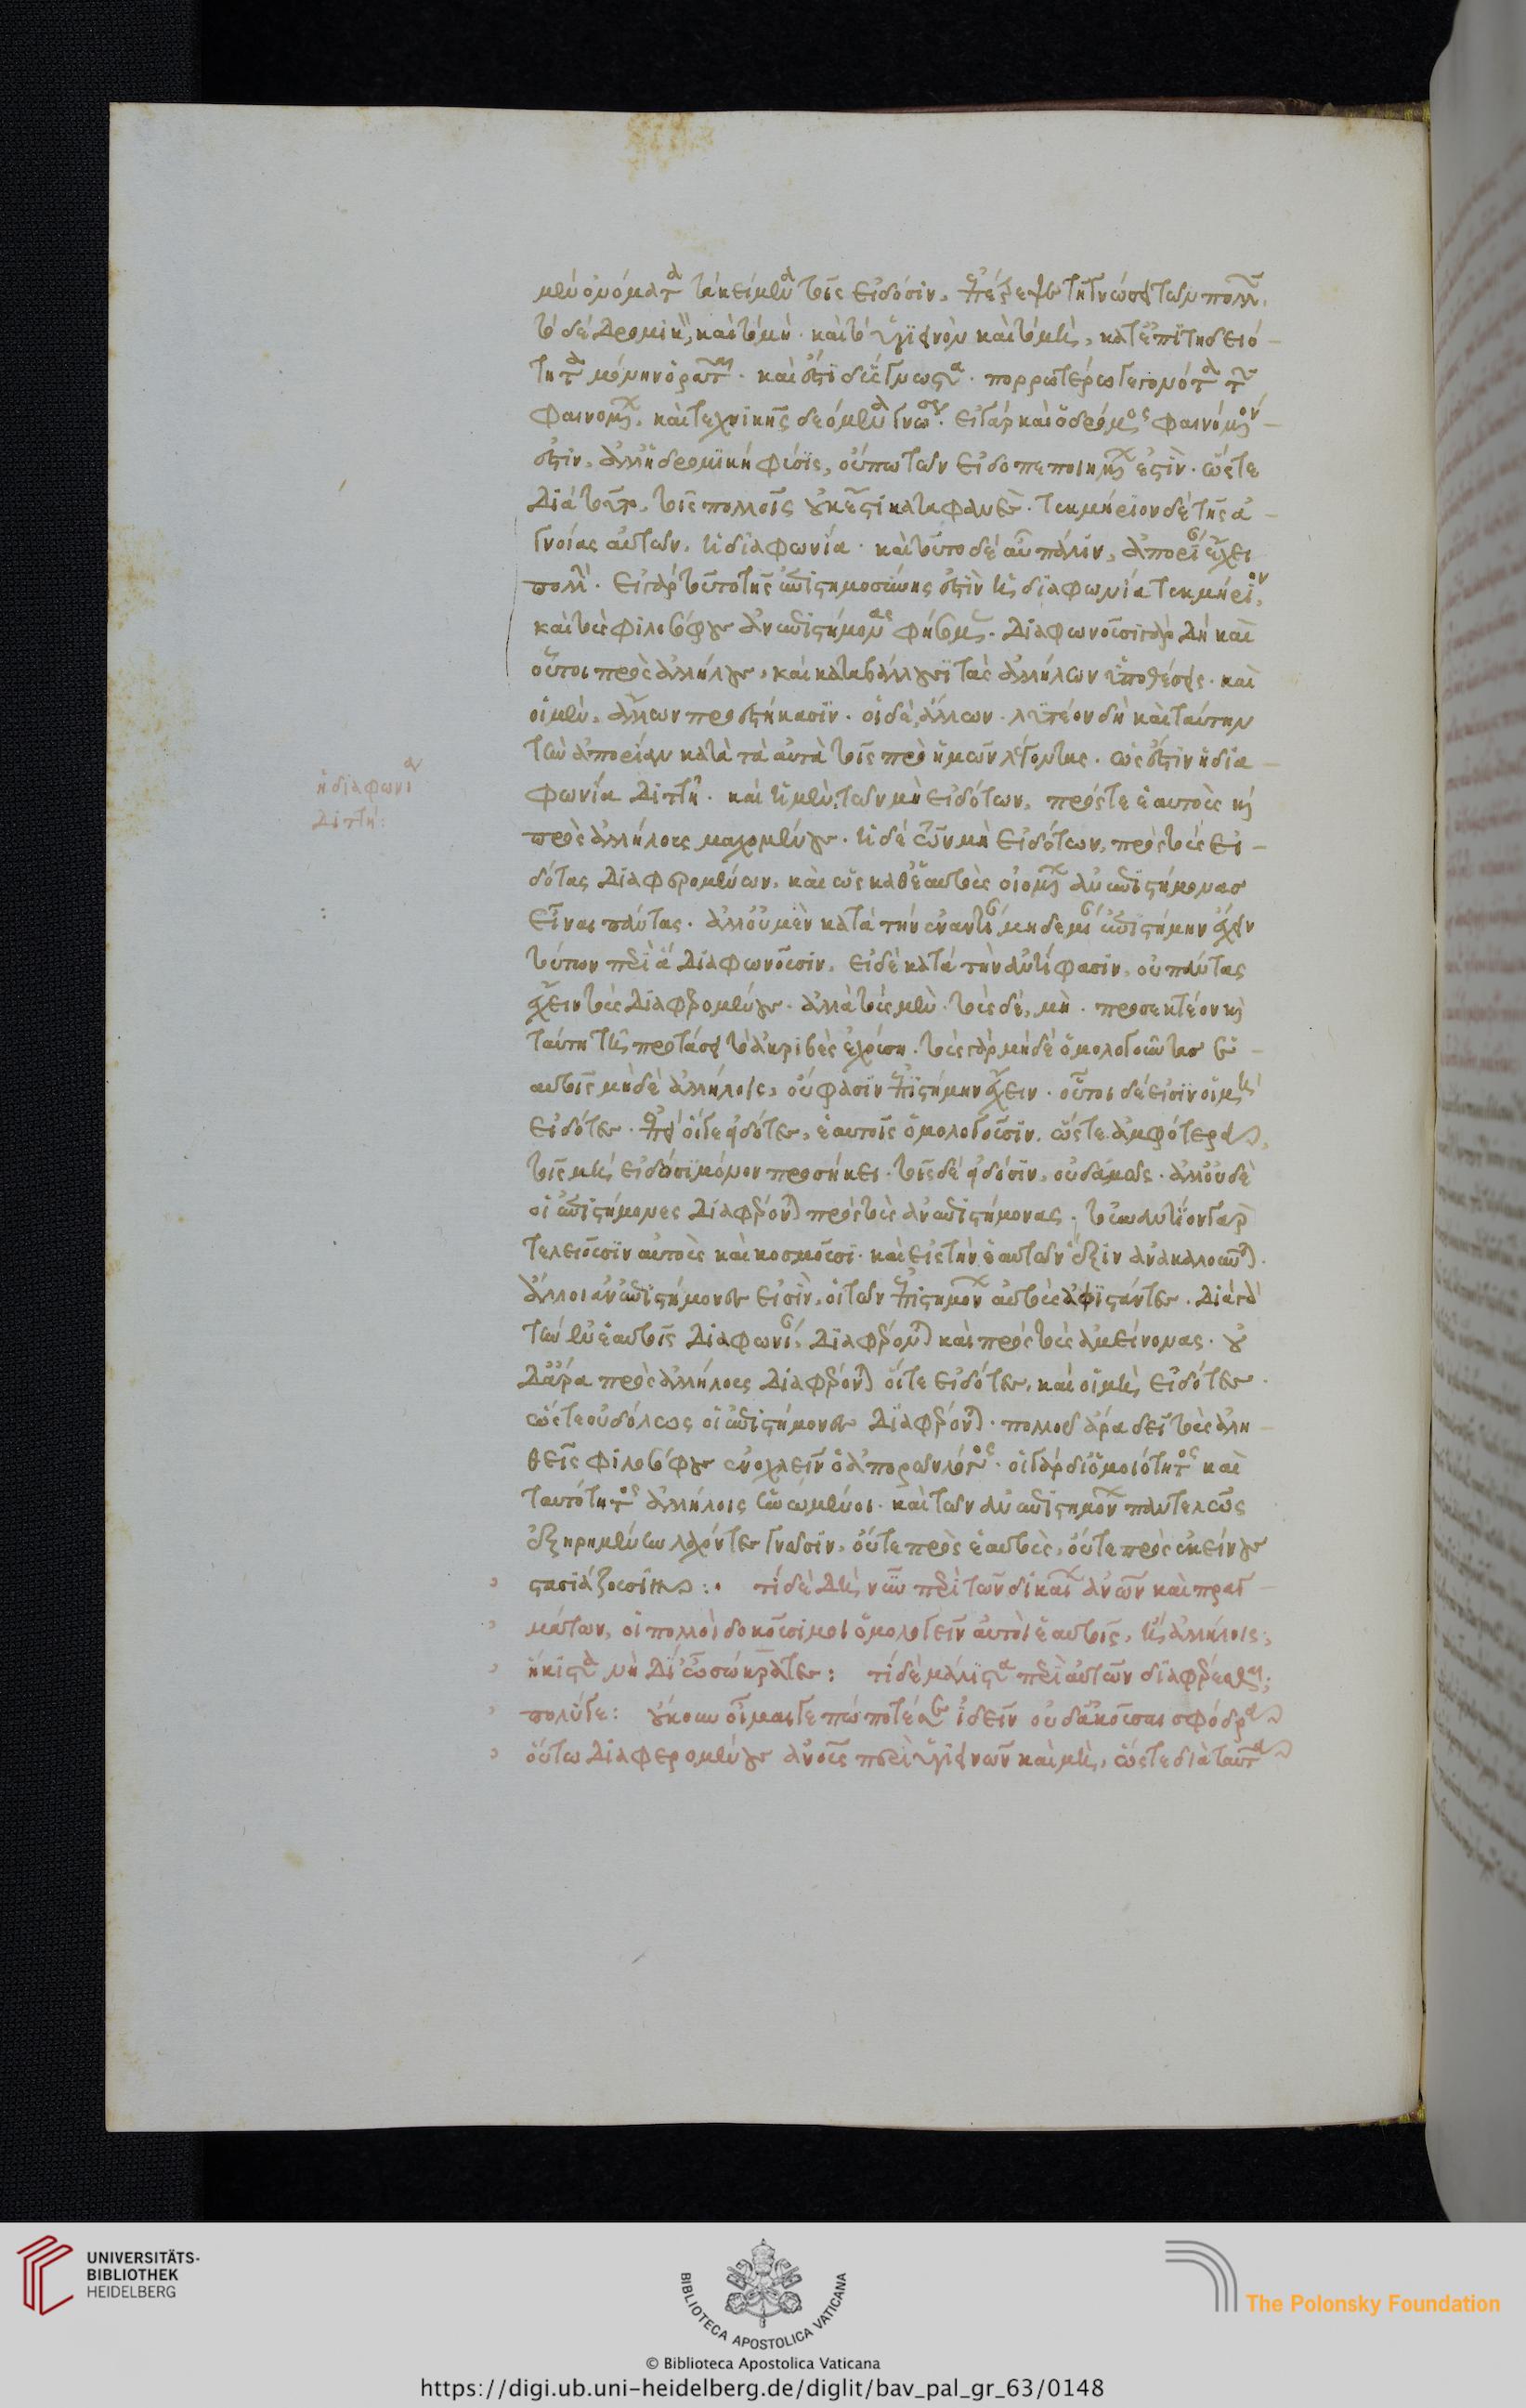 μὲν ὀνόματα τὰ κείμενα τοῖς εἰδόσιν, ἐπέτρεψε τῇ γνώσει τῶν πολλῶν,
τὸ δὲ δρομικὸν, καὶ τὸ μὴ · καὶ τὸ ὑγιεινὸν καὶ τὸ μὴ, κατ' ἐπιτηδειό-
τητα μόνην ὁρᾶται · καὶ ἔστι πορρωτέρω γεγονότα τῶν
φαινομένων, καὶ τεχνικῆς δεόμενα γνώσεως · εἰ γὰρ καὶ ὁ δρόμος φαινόμενόν
ἐστιν, ἀλλ' ἡ δρομικὴ φύσις, οὔπω τῶν εἰδοπεποιημένων ἐστίν · ὥστε
διὰ τοῦτο, τοῖς πολλοῖς οὐκ ἔστι καταφανές · τεκμήριον δὲ τῆς ἀ-
γνοίας αὐτῶν, ἡ διαφωνία · καὶ τοῦτο δὲ αὖ πάλιν, ἀπορίαν ἔχει
πολλήν · εἰ γὰρ τοῦτο τῆς ἀνεπιστημοσύνης ἐστὶν ἡ διαφωνία τεκμήριον,
καὶ τοὺς φιλοσόφους ἀνεπιστήμονας φήσομεν · διαφωνοῦσι γὰρ δὴ καὶ
οὗτοι πρὸς ἀλλήλους, καὶ καταβάλλουσι τὰς ἀλλήλων ὑποθέσεις · καὶ
οἱ μὲν, ἄλλων προεστήκασιν · οἱ δὲ, ἄλλων · λυτέον δὴ καὶ ταύτην
τὴν ἀπορίαν κατὰ τὰ αὐτὰ τοῖς πρὸ ἡμῶν λέγοντας · ὡς ἔστιν ἡ δια-
φωνία διττή · καὶ ἡ μὲν, τῶν μὴ εἰδότων, πρός τε ἑαυτοὺς καὶ
πρὸς ἀλλήλους μαχομένους · ἡ δὲ τῶν μὴ εἰδότων, πρὸς τοὺς εἰ-
δότας διαφερομένων, καὶ ὡς καθ' ἑαυτοὺς οἰομένων ἀνεπιστήμονας
εἶναι πάντας · ἀλλ' οἱ μὲν κατὰ τὴν ἐναντίαν μηδεμίαν ἐπιστήμην ἔχειν
τούτων περὶ ἃ διαφωνοῦσιν, εἰ δὲ κατὰ τὴν ἀντίφασιν, οὐ πάντας
ἔχειν τοὺς διαφερομένους · ἀλλὰ τοὺς μὲν · τοὺς δὲ, μή · προσεκτέον καὶ
ταύτῃ τῇ προτάσει τὸ ἀκριβὲς ἐχούσῃ · τοὺς γὰρ μηδὲ ὁμολογοῦντας ἑ-
αυτοῖς μηδὲ ἀλλήλοις, οὔ φασιν ἐπιστήμην ἔχειν · οὗτοι δέ εἰσιν οἱ μὴ
εἰδότες · ἐπεὶ οἵγε εἰδότες, ἑαυτοῖς ὁμολογοῦσιν, ὥστε ἀμφότερα,
τοῖς μὴ εἰδόσι μόνον προσήκει · τοῖς δὲ εἰδόσιν, οὐδαμῶς · ἀλλ' οὐδὲ
οἱ ἐπιστήμονες διαφέρονται πρὸς τοὺς ἀνεπιστήμονας · τοὐναντίον γὰρ
τελειοῦσιν αὐτοὺς καὶ κοσμοῦσι · καὶ εἰς τὴν ἑαυτῶν ἕξιν ἀνακαλοῦνται ·
ἀλλ' οἱ ἀνεπιστήμονές εἰσιν, οἱ τῶν ἐπιστημόνων αὐτοὺς ἀφιστάντες · διὰ γὰρ
τὴν ἐν ἑαυτοῖς διαφωνίαν, διαφέρονται καὶ πρὸς τοὺς ἀμείνονας · οὐ
δ' ἄρα πρὸς ἀλλήλους διαφέρονται οἵ τε εἰδότες, καὶ οἱ μὴ εἰδότες ·
ὥστε οὐδ' ὅλως οἱ ἐπιστήμονες διαφέρονται · πολλοῦ ἄρα δεῖ τοὺς ἀλη-
θεῖς φιλοσόφους ἐνοχλεῖν ὁ ἀπορῶν λόγος · οἱ γὰρ δι' ὁμοιότητος καὶ
ταυτότητος ἀλλήλοις ἡνωμένοι · καὶ τῶν ἀνεπιστημόνων παντελῶς
ἐξῃρημένην λαχόντες γνῶσιν, οὔτε πρὸς ἑαυτοὺς, οὔτε πρὸς ἐκείνους
στασιάζουσιν :· τί δὲ δὴ νῦν περὶ τῶν δικαίων ἀνθρώπων καὶ πραγ-
μάτων, οἱ πολλοὶ δοκοῦσί μοι ὁμολογεῖν αὐτοὶ ἑαυτοῖς, ἢ ἀλλήλοις;
ἥκιστα νὴ Δί' ὦ σώκρατες : τί δὲ μάλιστα περὶ αὐτῶν διαφέρεσθαι;
πολύ γε : οὔκουν οἶμαί γε πώποτέ σε ἰδεῖν οὐδ' ἀκοῦσαι σφόδρα
οὕτω διαφερομένους ἀνθρώπους περὶ ὑγιεινῶν καὶ μὴ, ὥστε διὰ ταῦτα
ἡ διαφωνία
διττή:
UNIVERSITÄTS-
BIBLIOTHEK
HEIDELBERG
BIBLIOTECA APOSTOLICA VATICANA
The Polonsky Foundation
© Biblioteca Apostolica Vaticana
https://digi.ub.uni-heidelberg.de/diglit/bav_pal_gr_63/0148